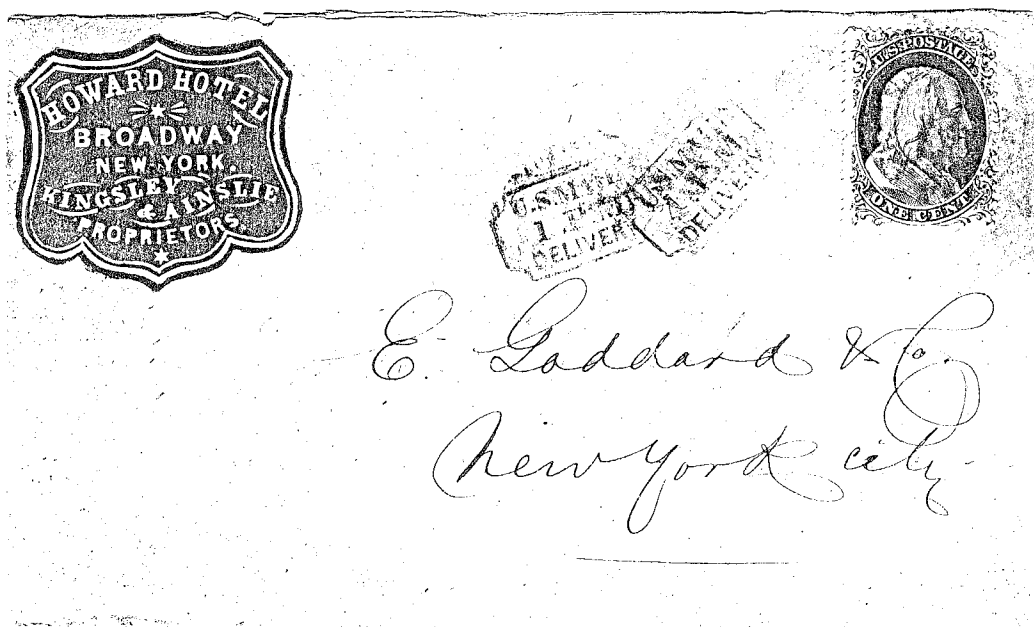 HOWARD HOTEL
BROADWAY
NEW-YORK.
KINGSLEY
& AINSLIE
PROPRIETORS.
U.S. POSTAGE
ONE CENT
U.S. MAIL
1
DELIVERY
DELIVERY
E. Goddard & Co.
New York city